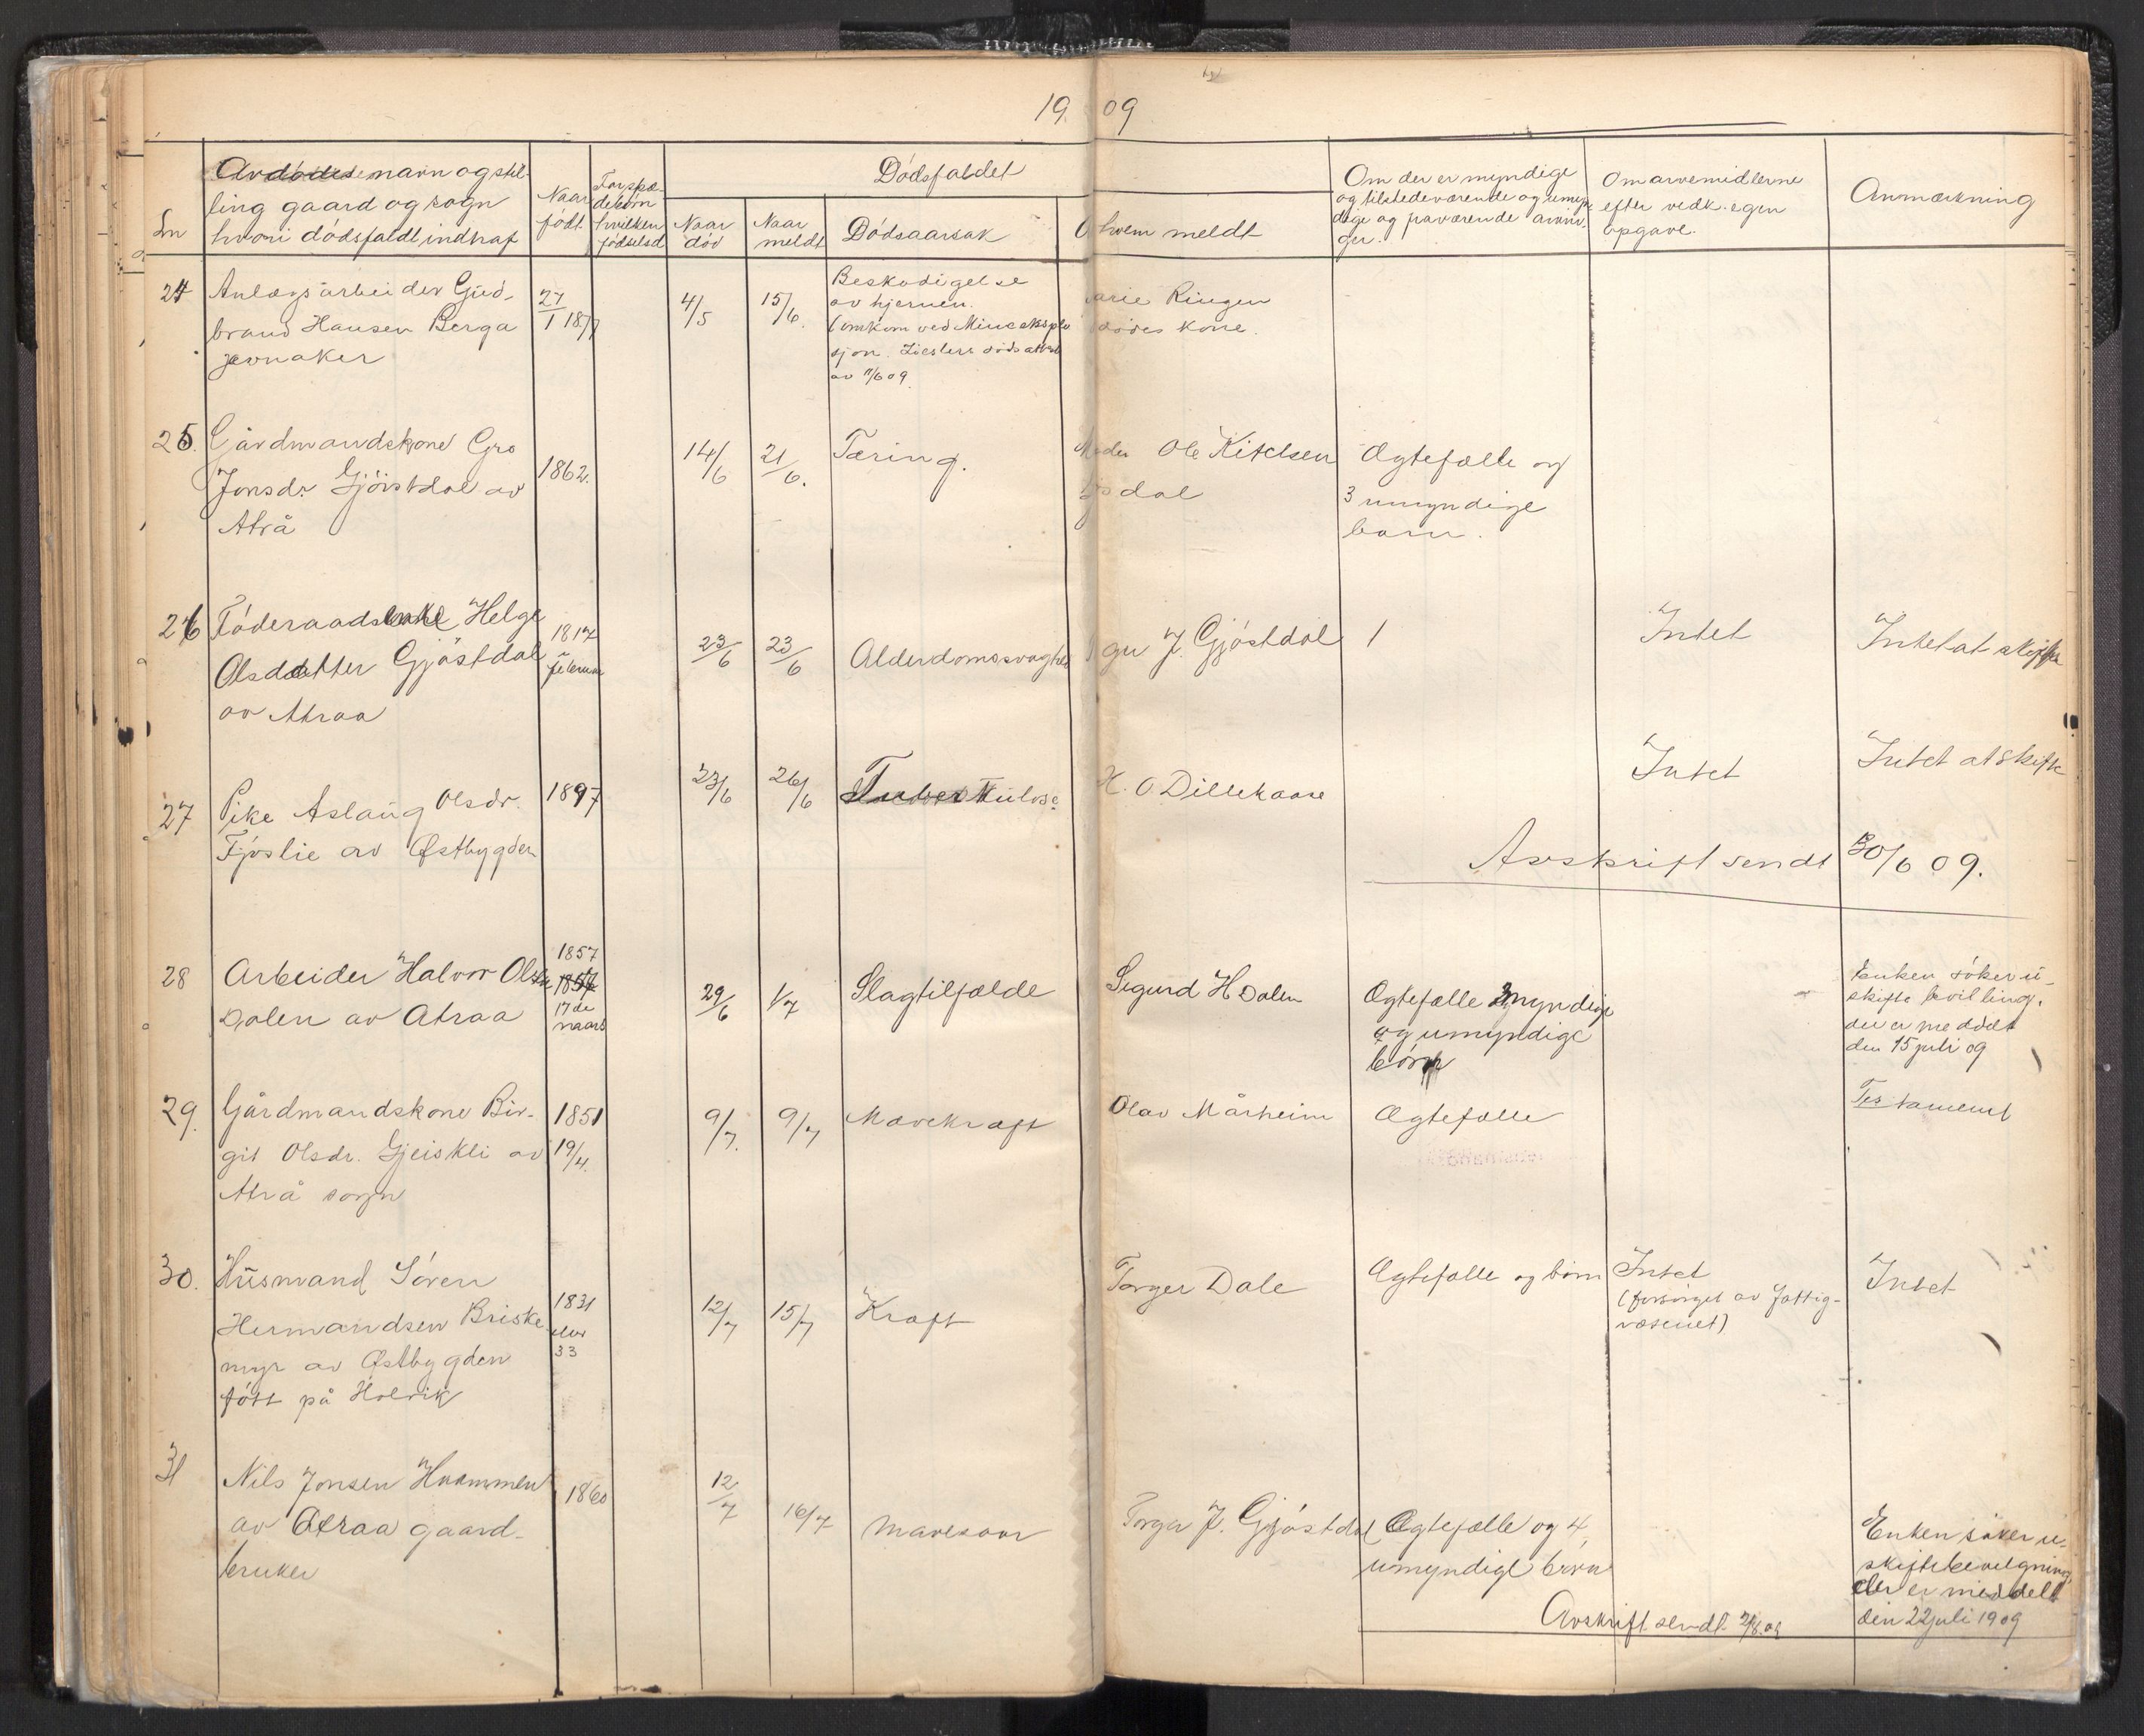 19 09
Avdødes navn og stil-
ling gaard og sogn
hvori dødsfaldt indtraf
Naar
født
For spæ-
debørn
hvilken
fødselsd
Dødsfaldet
Naar
død
Naar
meldt
Dødsaarsak
hvem meldt
Om der er myndige
og tilstedeværende og umyn
dige og fraværende arvin-
ger.
Om arvemidlerne
efter vedk. egen
opgave.
Anmærkning
24
Anlægsarbeider Gud-
brand Hansen Berga
Jevnaker
27/1 1877
4/5
15/6.
Beskadigelse
av hjernen.
(omkom ved Mineeksplo
sjon. dødsattest
av 11/6 09.
arie Ringen
dødes kone.
25.
Gårdmandskone Gro
Jonsdr Gjöistdal av
Atrå
1862.
14/6
21/6.
Tæring.
Ole Kitelsen
dal
Ægtefælle og
3 umyndige
barn.
26
Föderaadsenke Helge
Olsdatter Gjöstdal
av Atraa
1817
23/6
23/6
Alderdomssvaghed
ger J. Gjöstdal
1
Intet
Intet at skifte
27
Pike Aslaug Olsdr.
Fjöslie av Østbygden
1897
23/6
26/6
Tuberkulose
H. O. Dillekaase
Intet
Intet at skifte
Avskrift sendt 30/6 09.
28
Arbeider Halvor Olsen
Dalen av Atraa
1857
17de
mars
29/6
1/7
Slagtilfælde
Sigurd H Dalen
Ægtefælle 3 myndige
og umyndige
börn
Enken söker u-
skifte bevilling,
der er meddelt
den 15 juli 09
29.
Gårdmandskone Bir-
git Olsdr. Gjeiskli av
Atrå sogn
1851
19/4.
9/7.
9/7
Mavekræft
Olav Mårheim
Ægtefælle
Testament
30.
Husmand Sören
Hermandsen Briske
myr av Østbygden
fött på Holvik
1831
eller
33
12/7
15/7
Kræft
Torger Dale
Ægtefælle og börn
Intet
(forsörget av Fattig-
væsenet)
Intet
31
Nils Jonsen Hvammen
av Atraa gaard-
bruker
1860
12/7
16/7
mavesaar
Torger J. Gjöstdal
Ægtefælle og 4
umyndige börn
Enken söker u-
skiftebevilgning
der er meddelt
den 22 juli 1909
Avskrift sendt 2/8.09